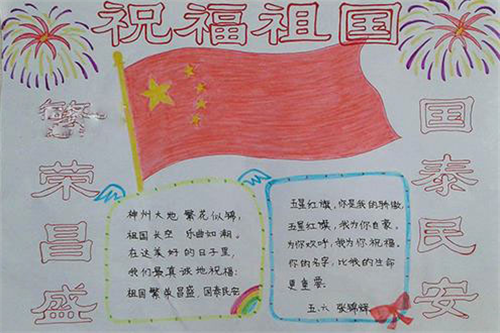 祝福祖国
繁荣昌盛
国泰民安
神州大地 繁花似锦,
祖国长空 乐曲如潮.
在这美好的日子里,
我们最真诚地祝福:
祖国繁荣昌盛,国泰民安
五星红旗,你是我的骄傲,
五星红旗,我为你自豪,
为你欢呼,我为你祝福.
你的名字,比我的生命
更重要.
五.六